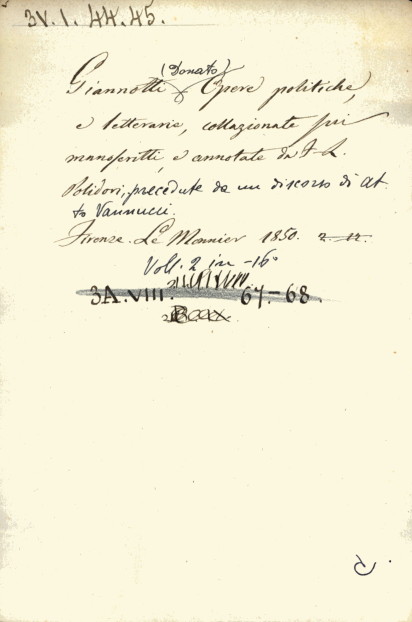 3V.1.44.45.
(Donato)
Giannotti Opere politiche,
e letterarie, collazionate sui
manoscritti, e annotate da F-L.
Polidori, precedute da un discorso di At-
to Vannucci.
Firenze. Le Monnier 1850. 2. 12.
Voll. 2 in -16°
3A.VIII. 67-68.